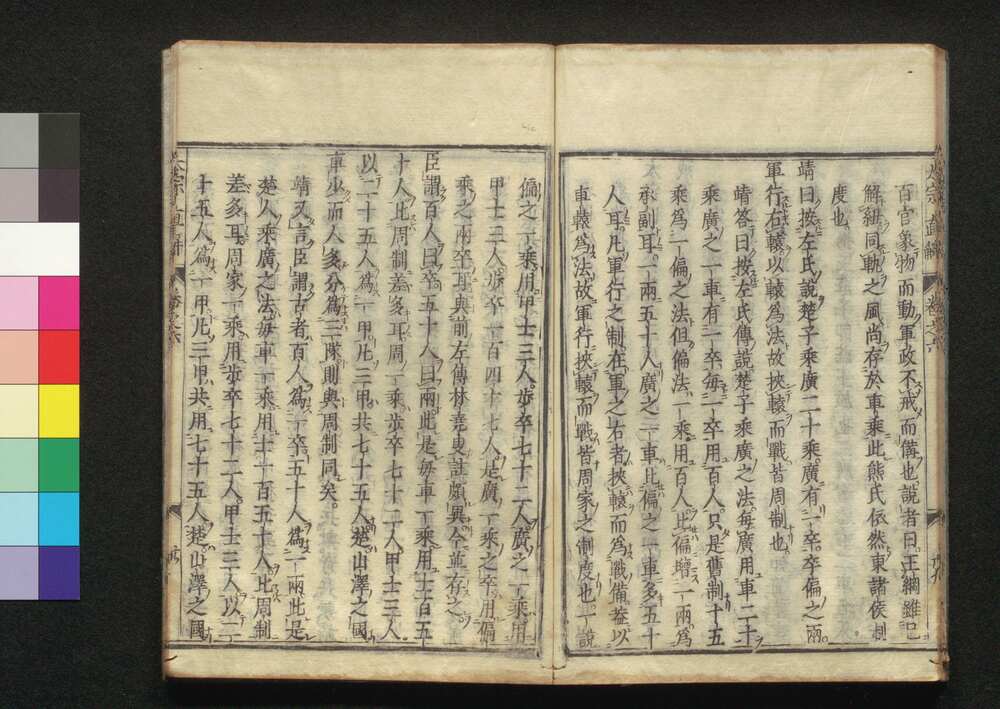 百官象物而動軍政不戒而備也說者曰王綱雖已
解紐同軌之風尚存於車乘此熊氏依然東諸侯制
度也
靖曰按左氏說楚子乘廣二十乘廣有一卒卒偏之兩
軍行右轅以轅為法故挾轅而戰皆周制也
靖答曰按左氏傳說楚子乘廣之法每廣用車二十
乘廣之一車有一卒每一卒用百人只是舊制十五
乘為一偏之法但偏法一乘用百人此偏增一兩為
承副耳一兩五十人廣之一車比偏之一車多五十
人耳凡軍行之制在軍之右者挾轅而為戰備蓋以
車轅為法故軍行挾轅而戰皆周家之制度也一說
偏之一乘用甲士三人步卒七十二人廣之一乘用
甲士三人步卒一百四十七人是廣一乘之卒用偏
乘之兩卒耳與前左傳林堯叟註頗異今並存之
臣謂百人曰卒五十人曰兩此是每車一乘用士百五
十人比周制差多耳周一乘步卒七十二人甲士三人
以二十五人為一甲凡三甲共七十五人楚山澤之國
車少而人多分為三隊則與周制同矣
靖又言臣謂古者百人為一卒五十人為一兩此是
楚人乘廣之法每車一乘用士一百五十人比周制
差多耳周家一乘用步卒七十二人甲士三人以二
十五人為一甲凡三甲共用七十五人楚山澤之國